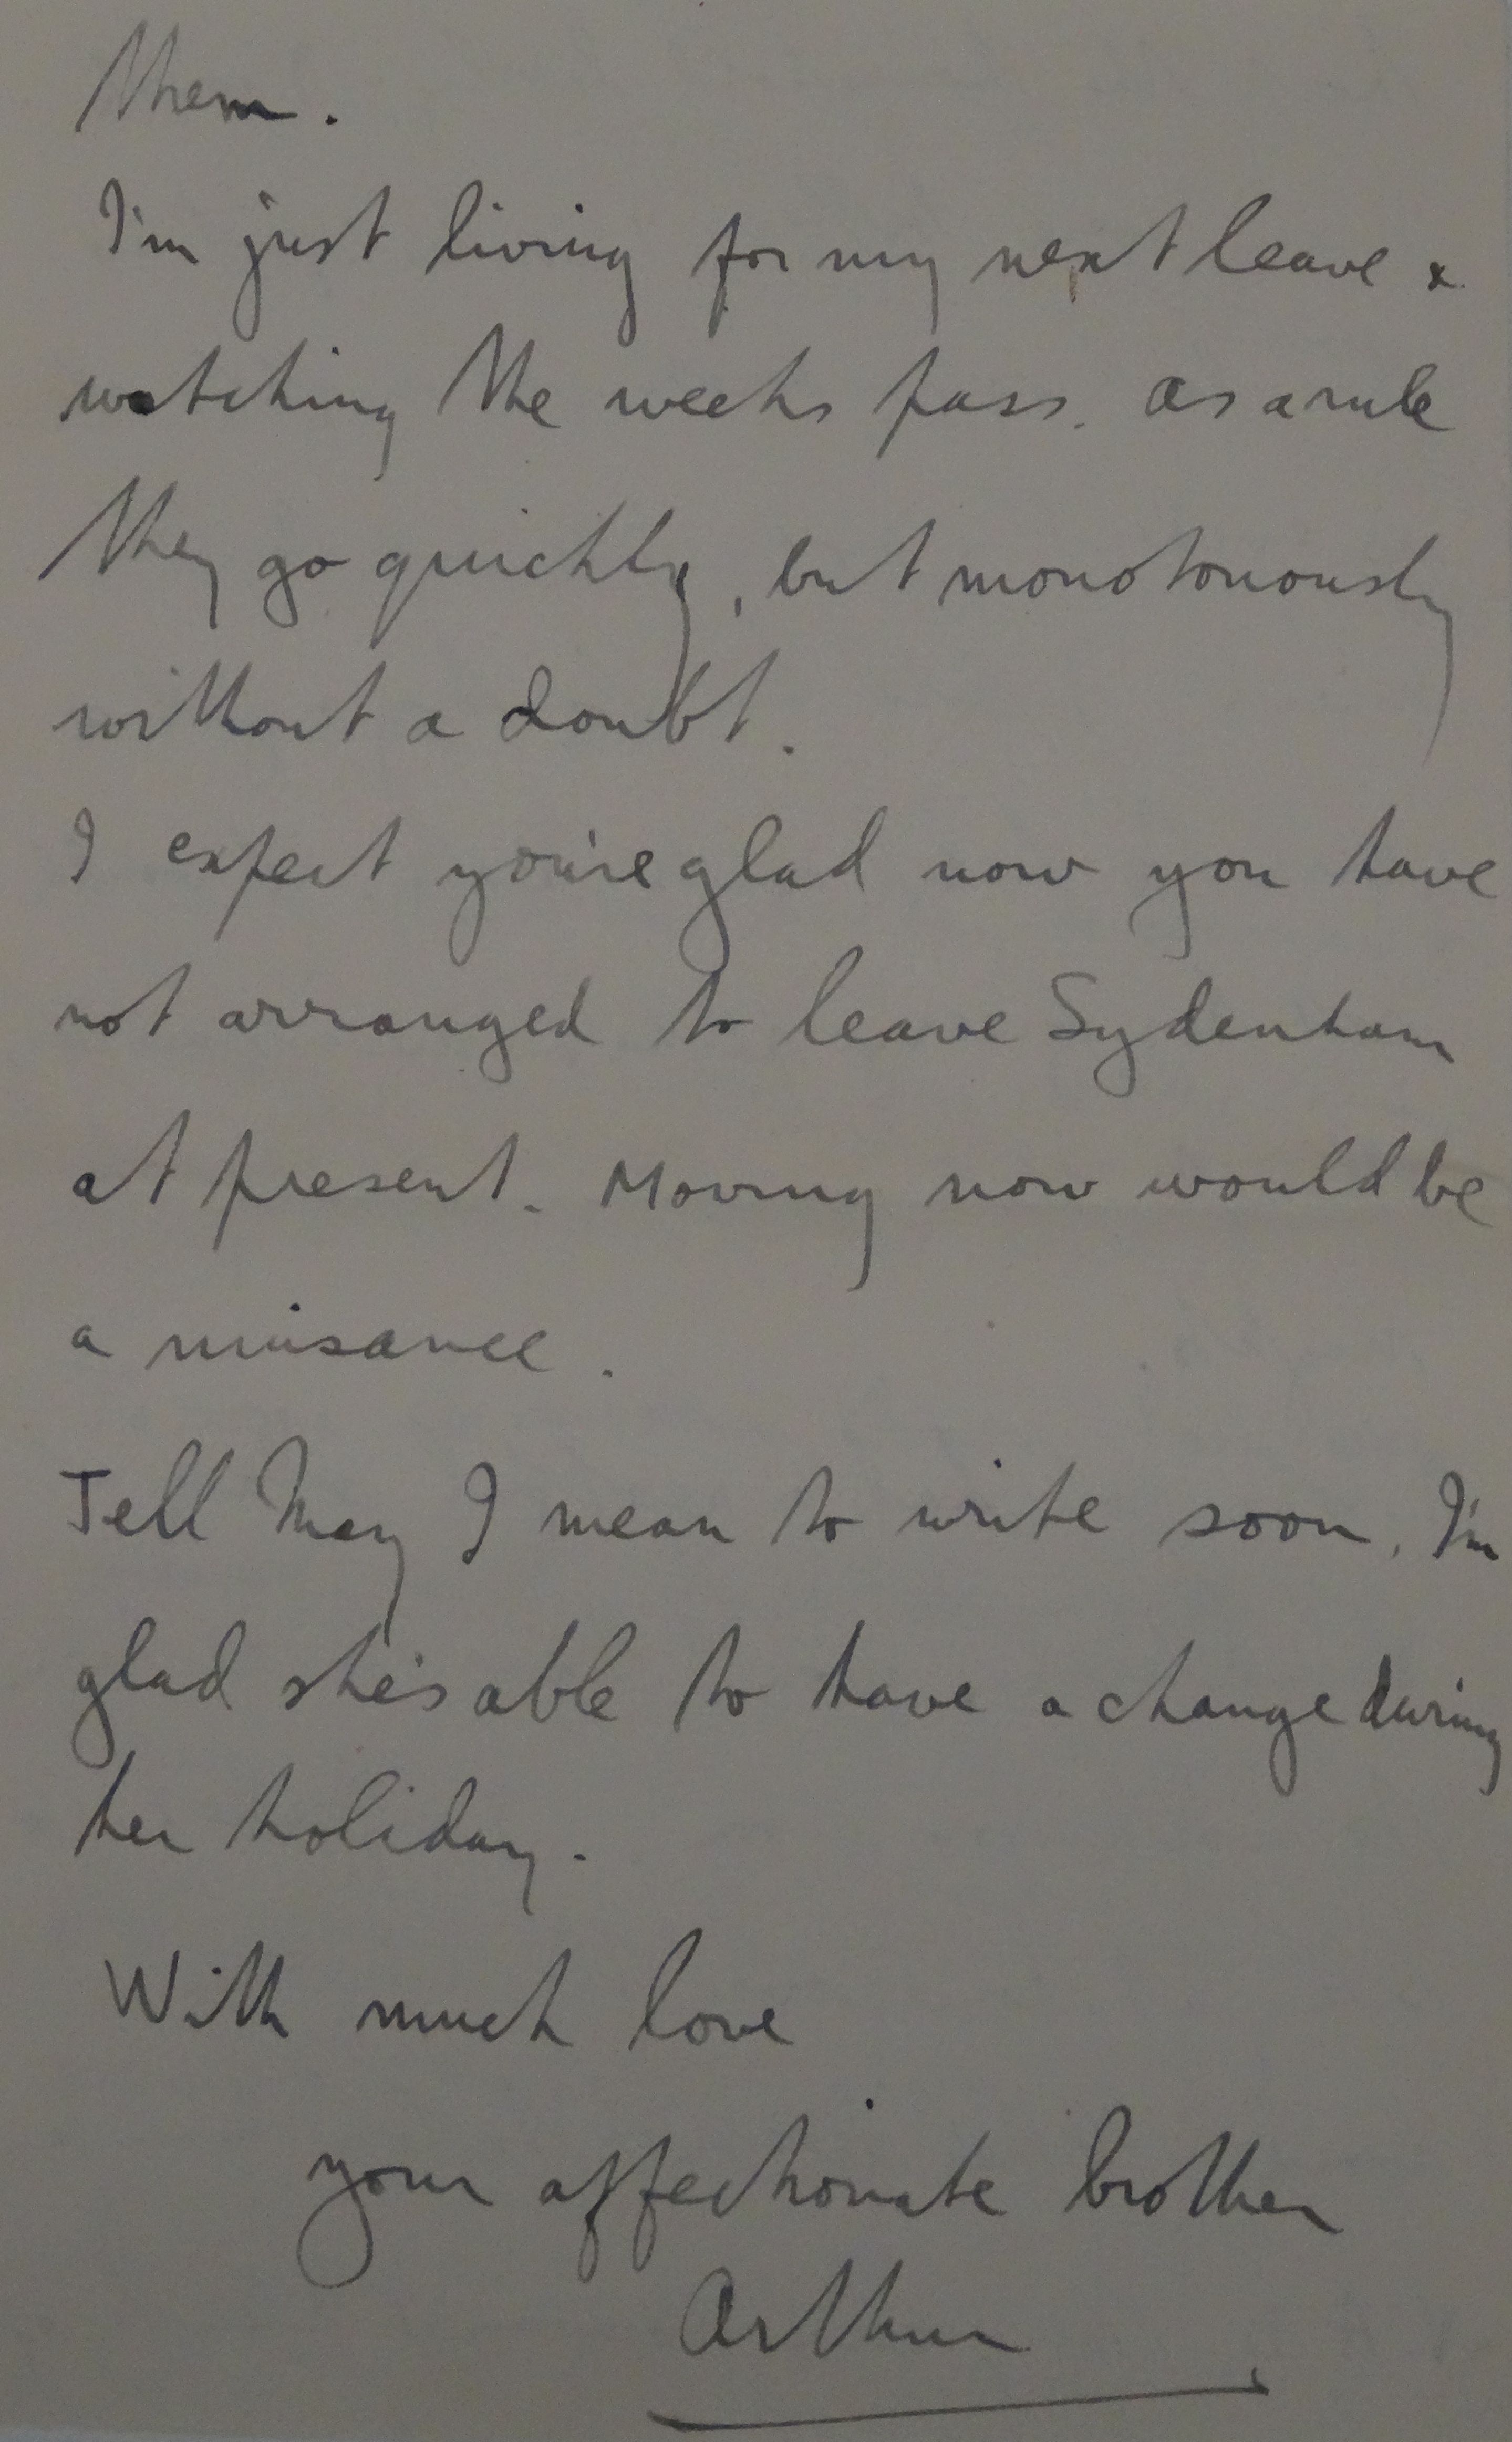 them.
I'm just living for my next leave &
watching the weeks pass. As a rule
they go quickly, but monotonously
without a doubt.
I expect you're glad now you have
not arranged to leave Sydenham
at present. Moving now would be
a nuisance.
Tell May I mean to write soon. I'm
glad she's able to have a change during
her holiday.
With much love
your affectionate brother
Arthur